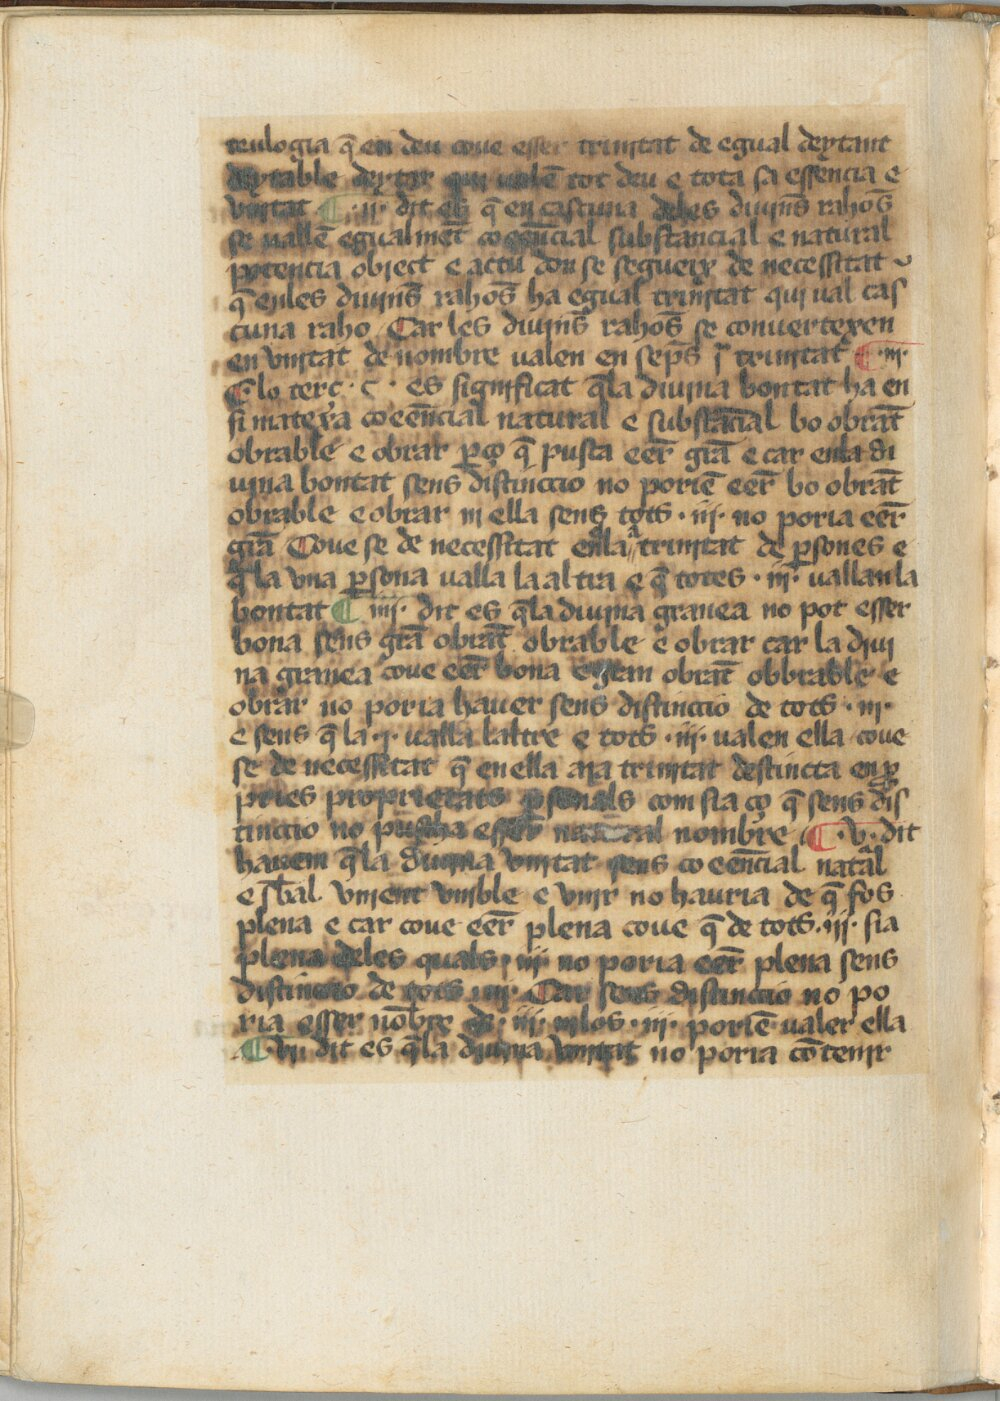 teulogia q̄ en deu coue esser trinitat de egual deytant
deytable deytar qui valē tot deu e tota sa essencia e
vnitat ¶ ·ij· dit es q̄ en cascuna deles diuin̄s rahoſ̄
se vallē egualmēt coeēncial substancial e natural
potencia obiect e actu don se segueix de necessitat
q̄ enles diuin̄s rahoſ̄ ha egual trinitat qui val cas
cuna raho Car les diuin̄s rahoſ̄ se conuertexen
en vnitat de nombre valen en sep̄s ·i· trinitat ¶ ·iij·
¶ lo terç · c · es significat q̄la diuina bontat ha en
si matexa coeēncial natural e substācial bo obrāt
obrable e obrar ꝑço q̄ pusca eēr grā e car enla di
uina bontat sens distinccio no poriē eēr bo obrāt
obrable e obrar ni ella sens tots ·iij· no poria eēr
grā Coue se de necessitat enla trinitat de ꝑsones e
q̄ la vna ꝑsona valla la altra e q̄ totes ·iij· vallan la
bontat ¶ iiij· dit es q̄la diuina granea no pot esser
bona sens grā obrāt obrable e obrar car la diui
na granea coue eēr bona obrāt obbrable e
obrar no poria hauer sens distinccio de tots ·iij·
e sens q̄ la ·i· valla laltre e tots ·iij· valen ella coue
se de necessitat q̄ en ella aia trinitat destincta en ꝓ
pries proprietats ꝑsonals com sia ço q̄ sens dis
tinccio no puscha esser natural nombre ¶ ·v· dit
hauem q̄la diuina vnitat sens coeēncial natāl
e sb̄al vnient vnible e vnir no hauria de q̄ fos
plena e car coue eēr plena coue q̄ de tots ·iij· sia
plena deles quals ·iij· no poria eēr plena sens
distinccio de tots ·iij· Car sens distinccio no po
ria esser nōbre de ·iij· nilos ·iij· poriē valer ella
¶ vi· dit es q̄la diuina vnitat no poria cōtenir